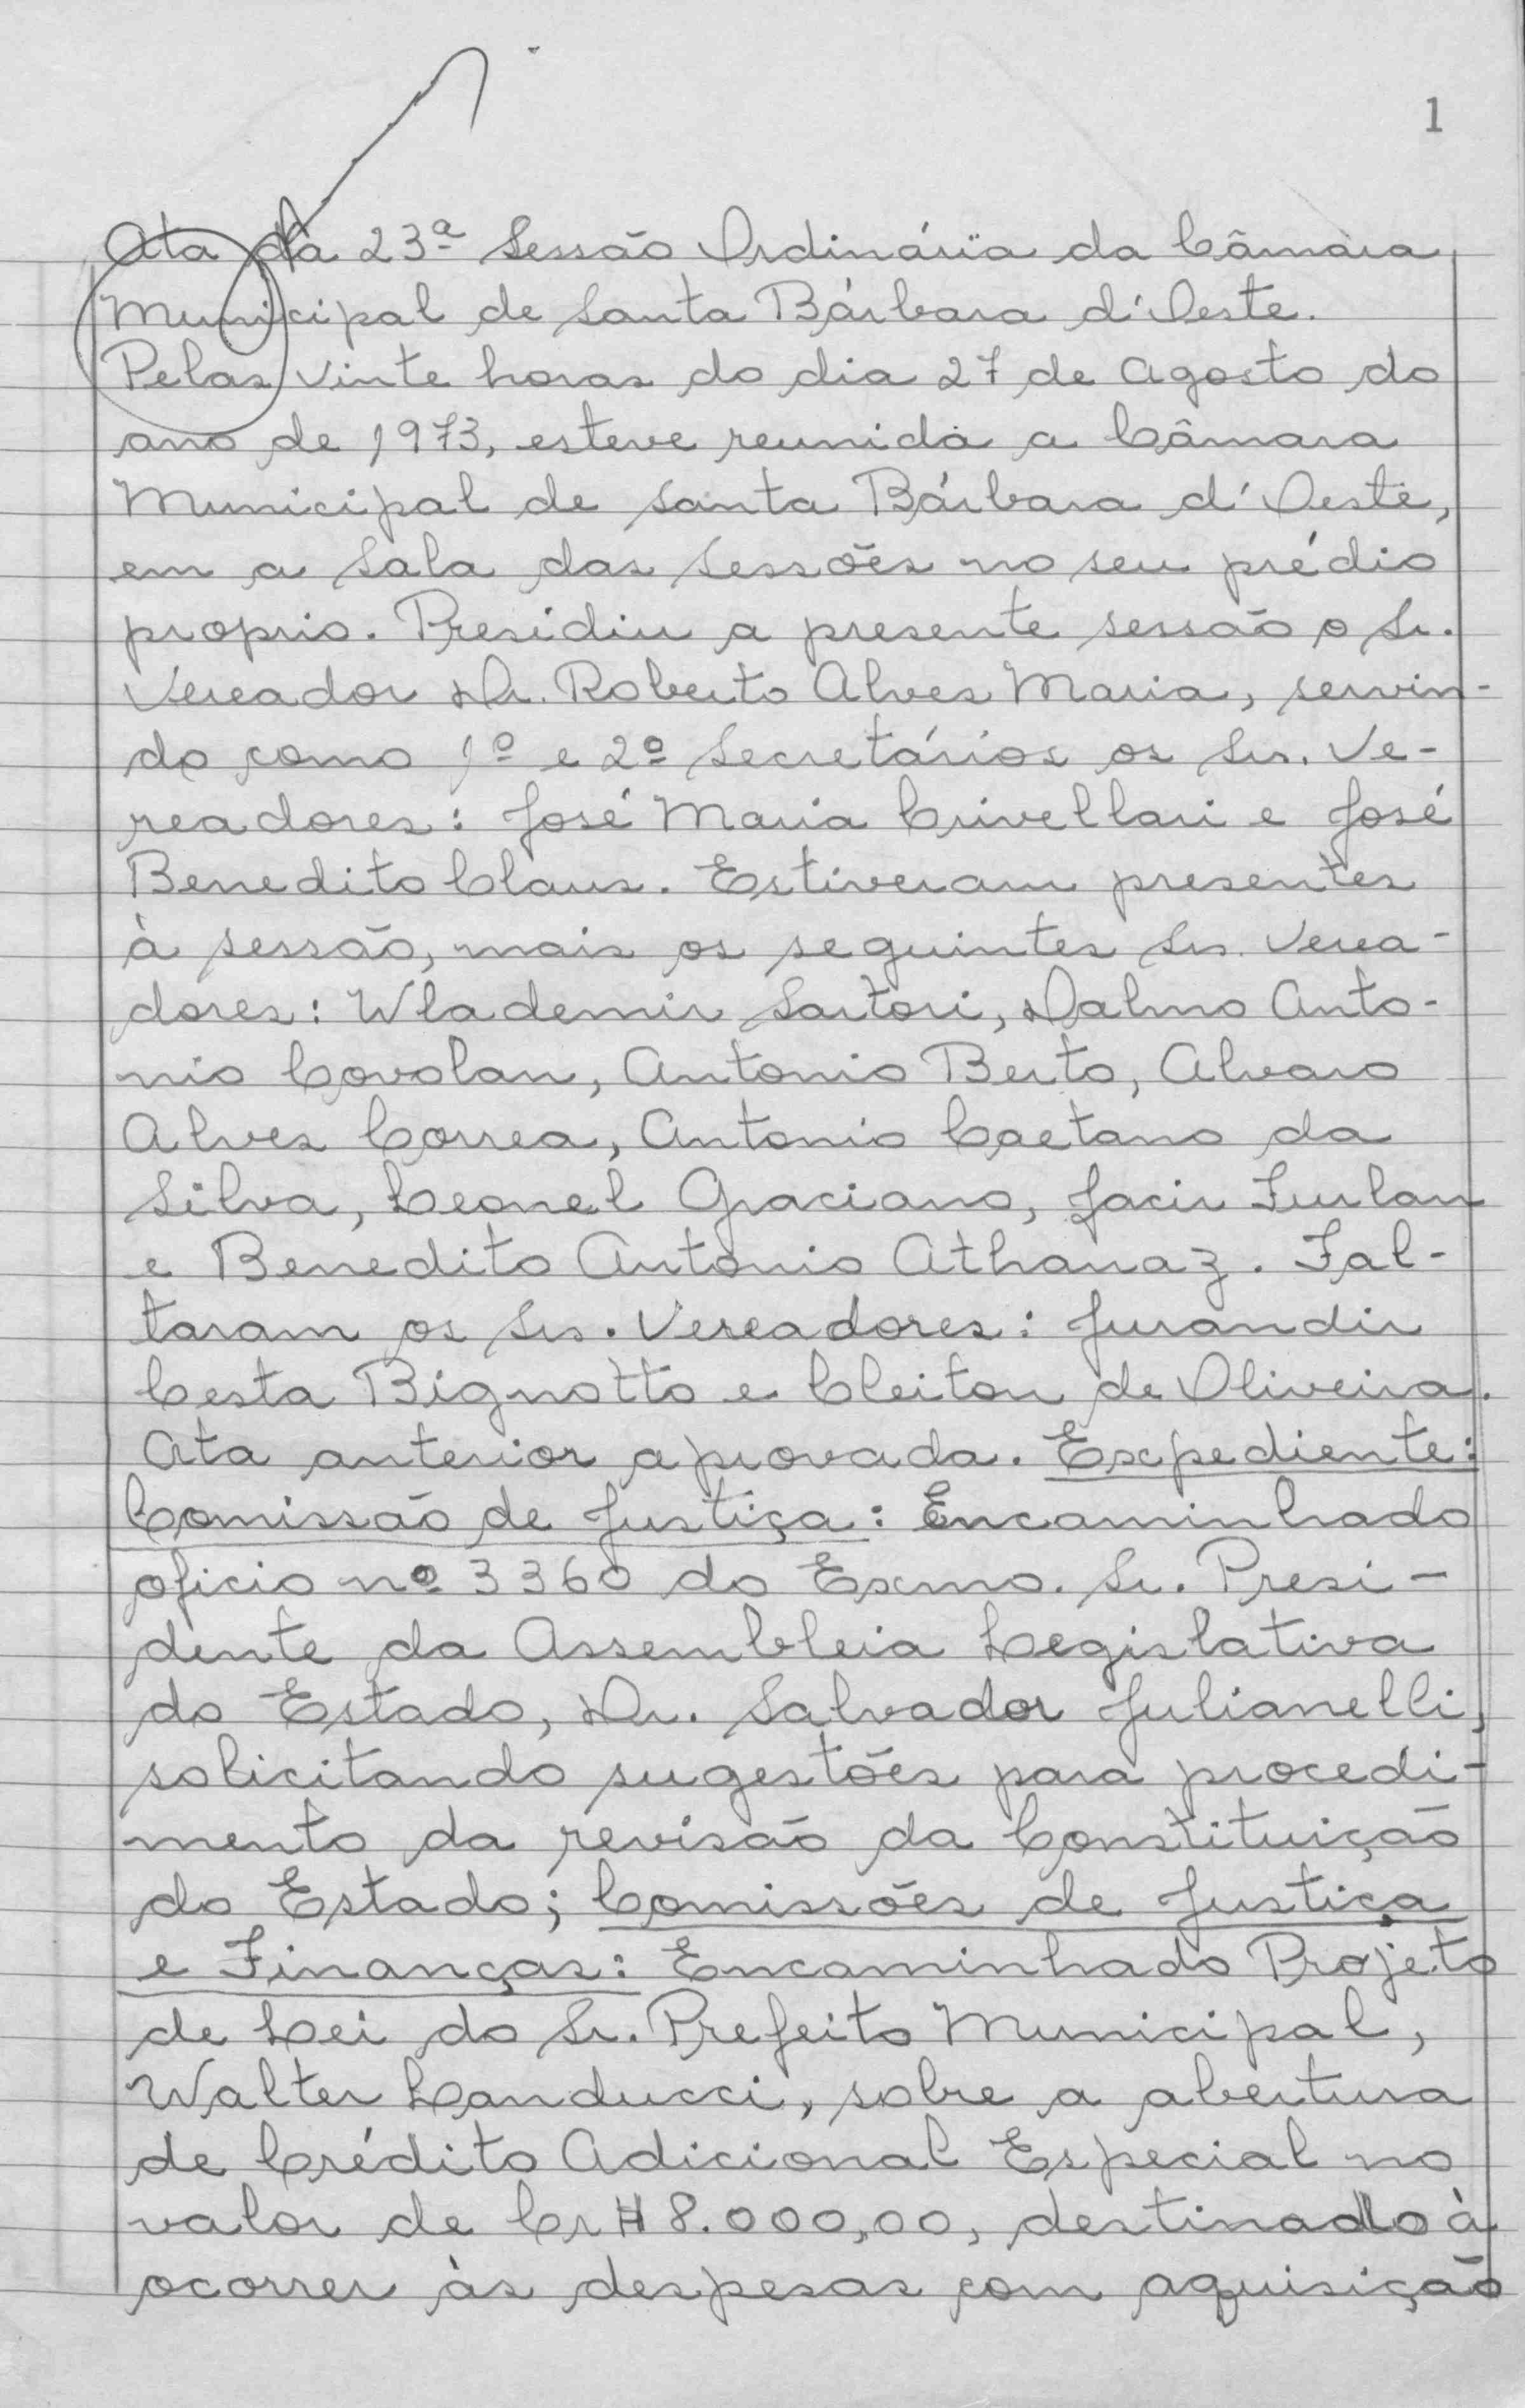 1
Ata da 23ª Sessão Ordinária da Câmara
Municipal de Santa Bárbara d'Oeste.
Pelas vinte horas do dia 27 de Agosto do
ano de 1973, esteve reunida a Câmara
Municipal de Santa Bárbara d'Oeste,
em a Sala das Sessões no seu prédio
proprio. Presidiu a presente sessão o Sr.
Vereador Dr. Roberto Alves Maria, servin-
do como 1º e 2º Secretários os Srs. Ve-
readores: José Maria Crivellari e José
Benedito Claus. Estiveram presentes
à sessão, mais os seguintes Srs. Verea-
dores: Wlademir Sartori, Dalmo Anto-
nio Covolan, Antonio Berto, Alvaro
Alves Correa, Antonio Caetano da
Silva, Leonel Graciano, Jacir Furlan
e Benedito Antonio Athanaz. Fal-
taram os Srs. Vereadores: Jurandir
Cesta Bignotto e Cleiton de Oliveira.
Ata anterior aprovada. Expediente:
Comissão de Justiça: Encaminhado
oficio nº 3360 do Exmo. Sr. Presi-
dente da Assembleia Legislativa
do Estado, Dr. Salvador Julianelli,
solicitando sugestões para procedi-
mento da revisão da Constituição
do Estado; Comissões de Justiça
e Finanças: Encaminhado Projeto
de Lei do Sr. Prefeito Municipal,
Walter Landucci, sobre a abertura
de Crédito Adicional Especial no
valor de Cr$ 8.000,00, destinado à
ocorrer às despesas com aquisição